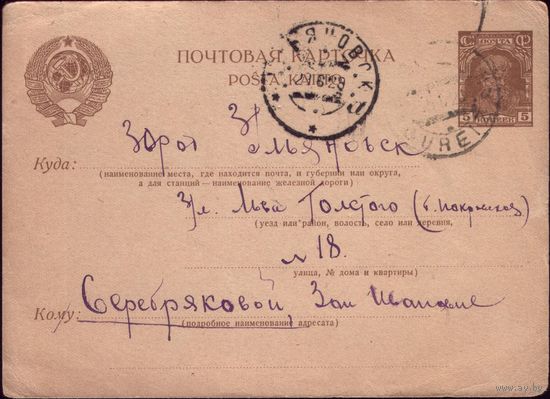 ПОЧТОВАЯ КАРТОЧКА
POŜTA KARTO
С.С.С.Р.
ПОЧТА
5 КОПЕЕК 5
УЛЬЯНОВСК
2.1.29
Ульяновск
Куда:
(наименование места, где находится почта, и губернии или округа,
а для станций—наименование железной дороги)
Ул. Льва Толстого (б. Покровская)
(уезд или район, волость, село или деревня,
18.
улица, № дома и квартиры)
Кому: Серебряковой, Зои Ивановне
(подробное наименование адресата)
www.ay.by